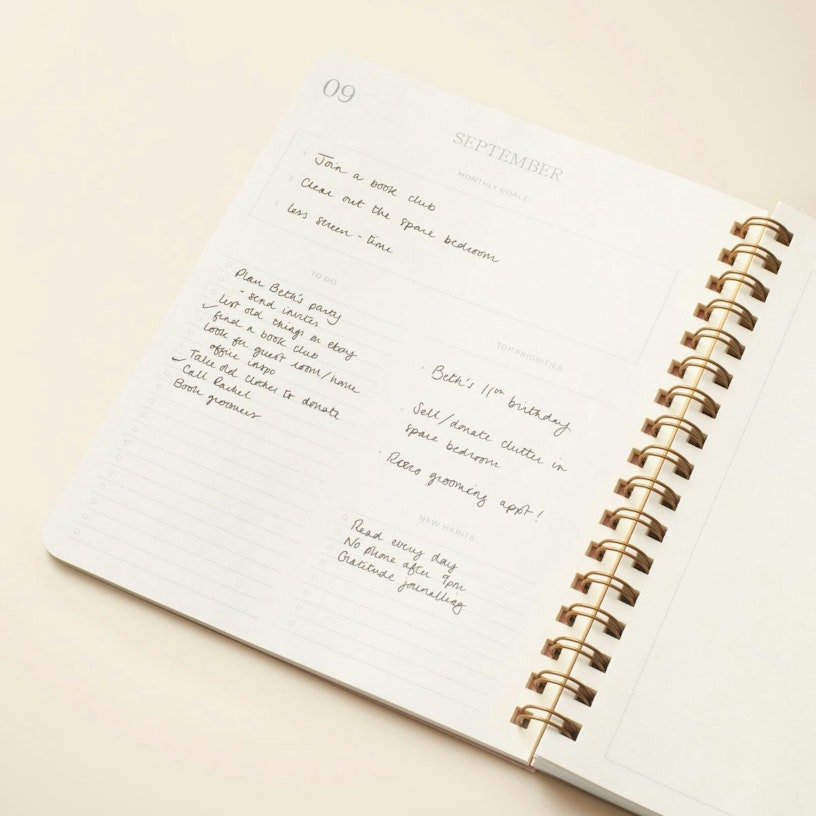 09
SEPTEMBER
MONTHLY GOALS
1 Join a book club
2 Clear out the spare bedroom
3 less screen-time
TO DO
Plan Beth's party
- send invites
✓ list old things on ebay
find a book club
look for guest room/home
office inspo
✓ Take old clothes to donate
Call Rachel
Book groomers
TOP PRIORITIES
· Beth's 11th birthday
· Sell/donate clutter in
spare bedroom
· Retro grooming appt!
NEW HABITS
Read every day
No phone after 9pm
Gratitude journalling